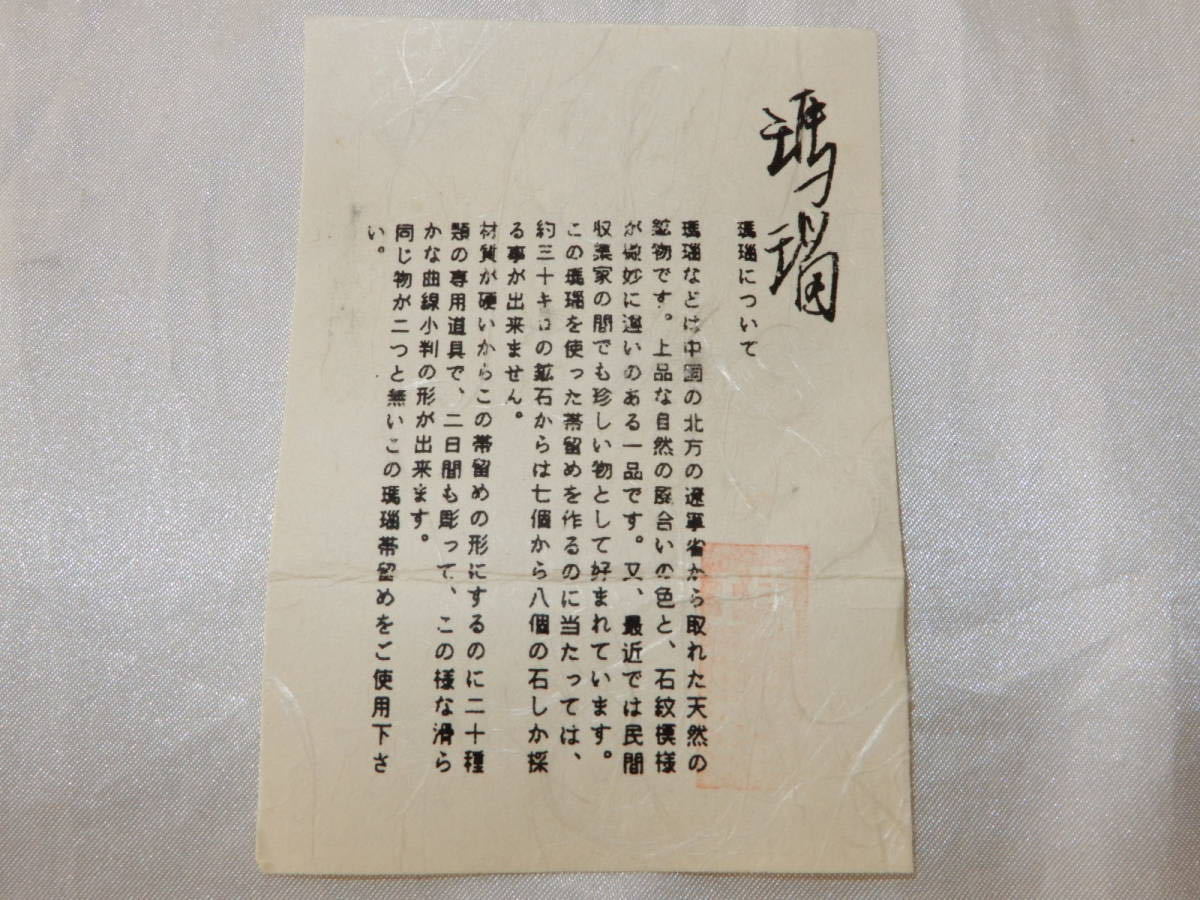 瑪瑙
瑪瑙について
瑪瑙などは中国の北方の遼寧省から取れた天然の
鉱物です。上品な自然の風合いの色と、石紋模様
が微妙に違いのある一品です。又、最近では民間
収集家の間でも珍しい物として好まれています。
この瑪瑙を使った帯留めを作るのに当たっては、
約三十キロの鉱石からは七個から八個の石しか採
る事が出来ません。
材質が硬いからこの帯留めの形にするのに二十種
類の専用道具で、二日間も彫って、この様な滑ら
かな曲線小判の形が出来ます。
同じ物が二つと無いこの瑪瑙帯留めをご使用下さ
い。